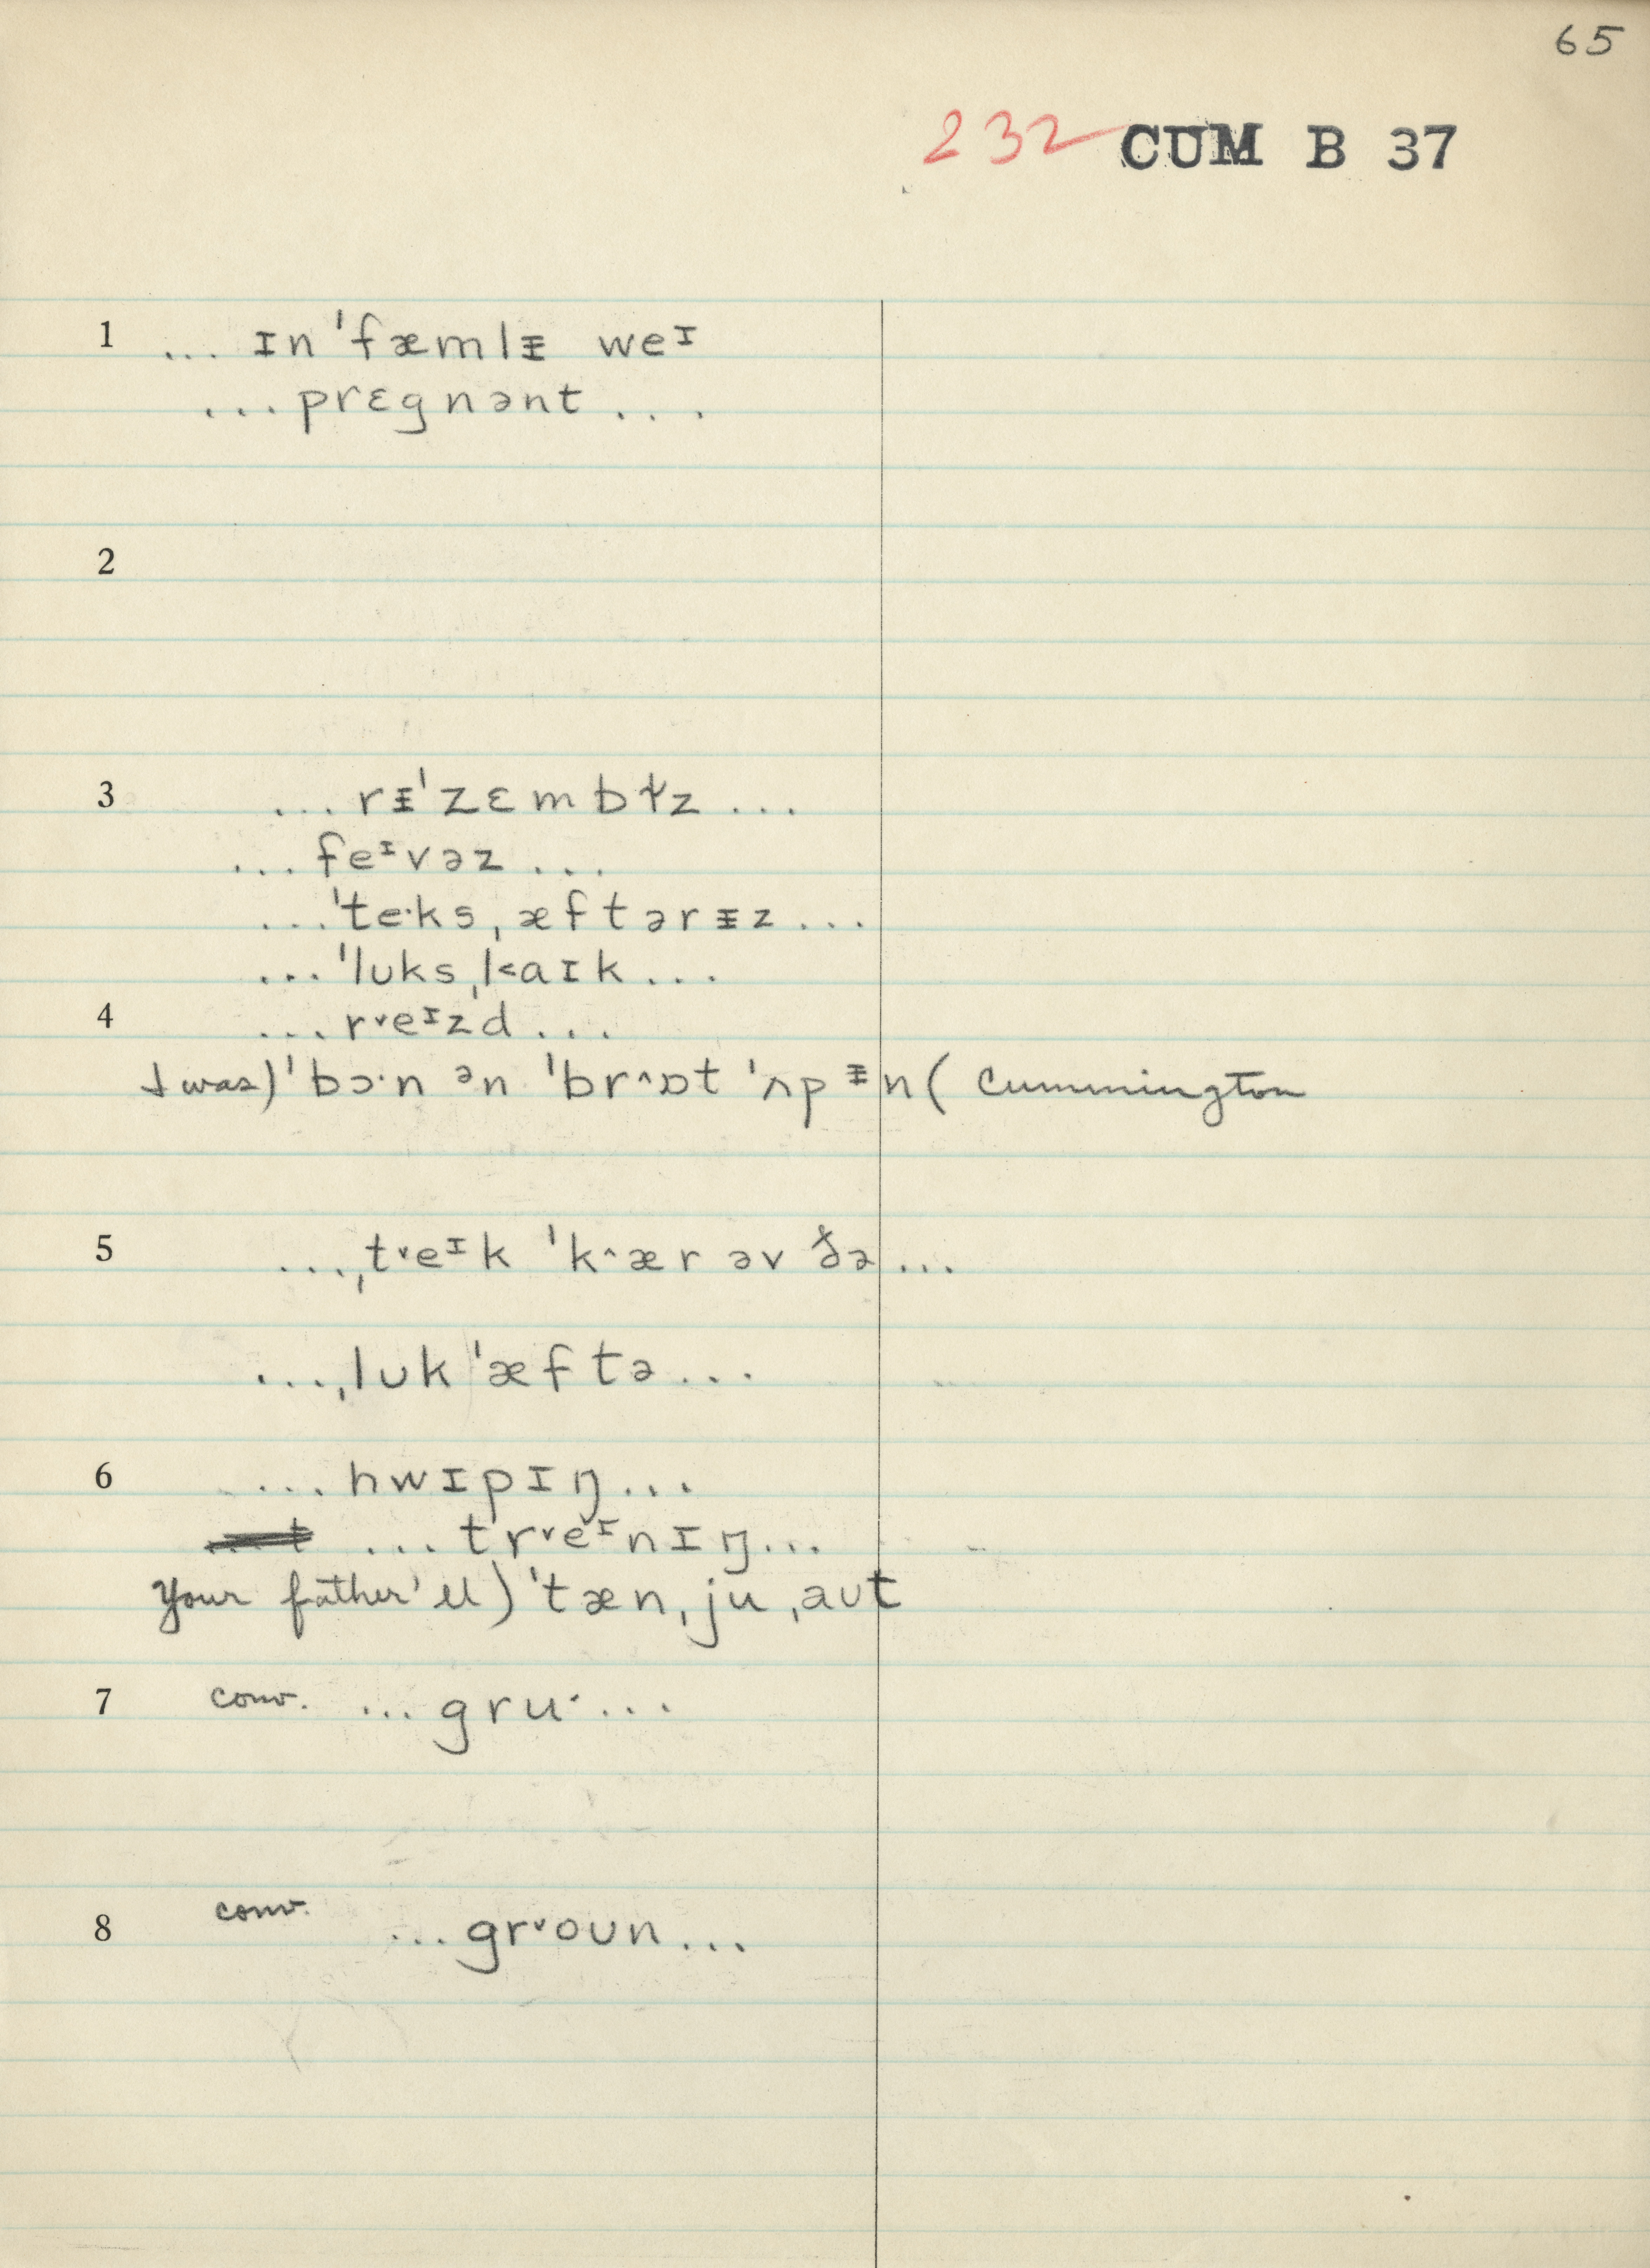 65
232 CUM B 37
1 ... ɪn ˈfæmlᵻ weᶦ
... prɛgnənt ...
2
3 ... rᵻˈzɛmbɫz ...
... feᶦvəz ...
... ˈte·ks ˌæftərᵻz ...
... ˈlʊks ˌl˂aɪk ...
4 ... r˅eᶦzd ...
I was) ˈbɔ·n ᵊn ˈbr^ɒt ˈʌp ᵻn ( Cummington
5 ... ˌt˅eᶦk ˈk^ær əv ðə ...
... ˌlʊk ˈæftə ...
6 ... hwɪpɪŋ ...
... tr˅eᶦnɪŋ ...
Your father'll) ˈtæn ˌju ˌaʊt
7 conv. ... gru· ...
8 conv. ... gr˅oʊn ...